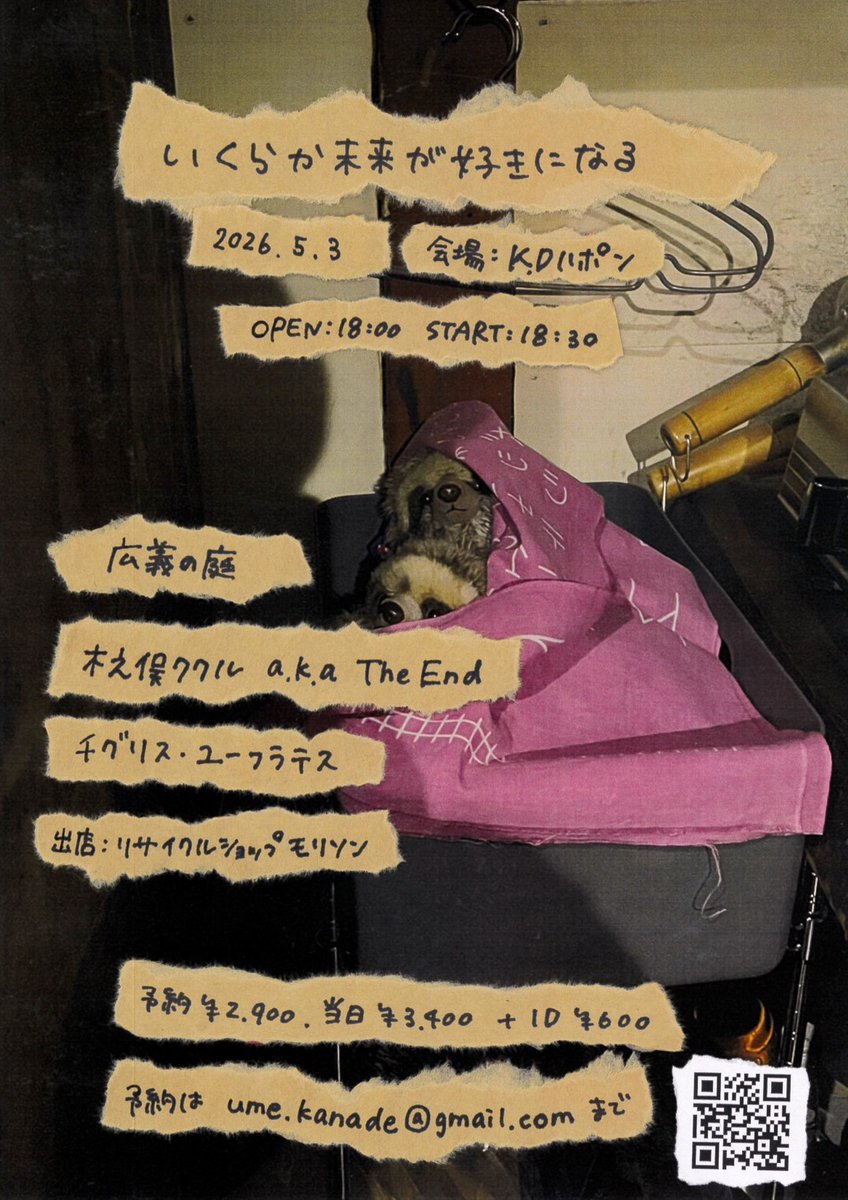 いくらか未来が好きになる
2026.5.3
会場:K.Dハポン
OPEN:18:00 START:18:30
広義の庭
木之俣ククル a.k.a The End
チグリス・ユーフラテス
出店:リサイクルショップモリソン
予約¥2.900.当日¥3.400 + 1D ¥600
予約は ume.kanade@gmail.com まで